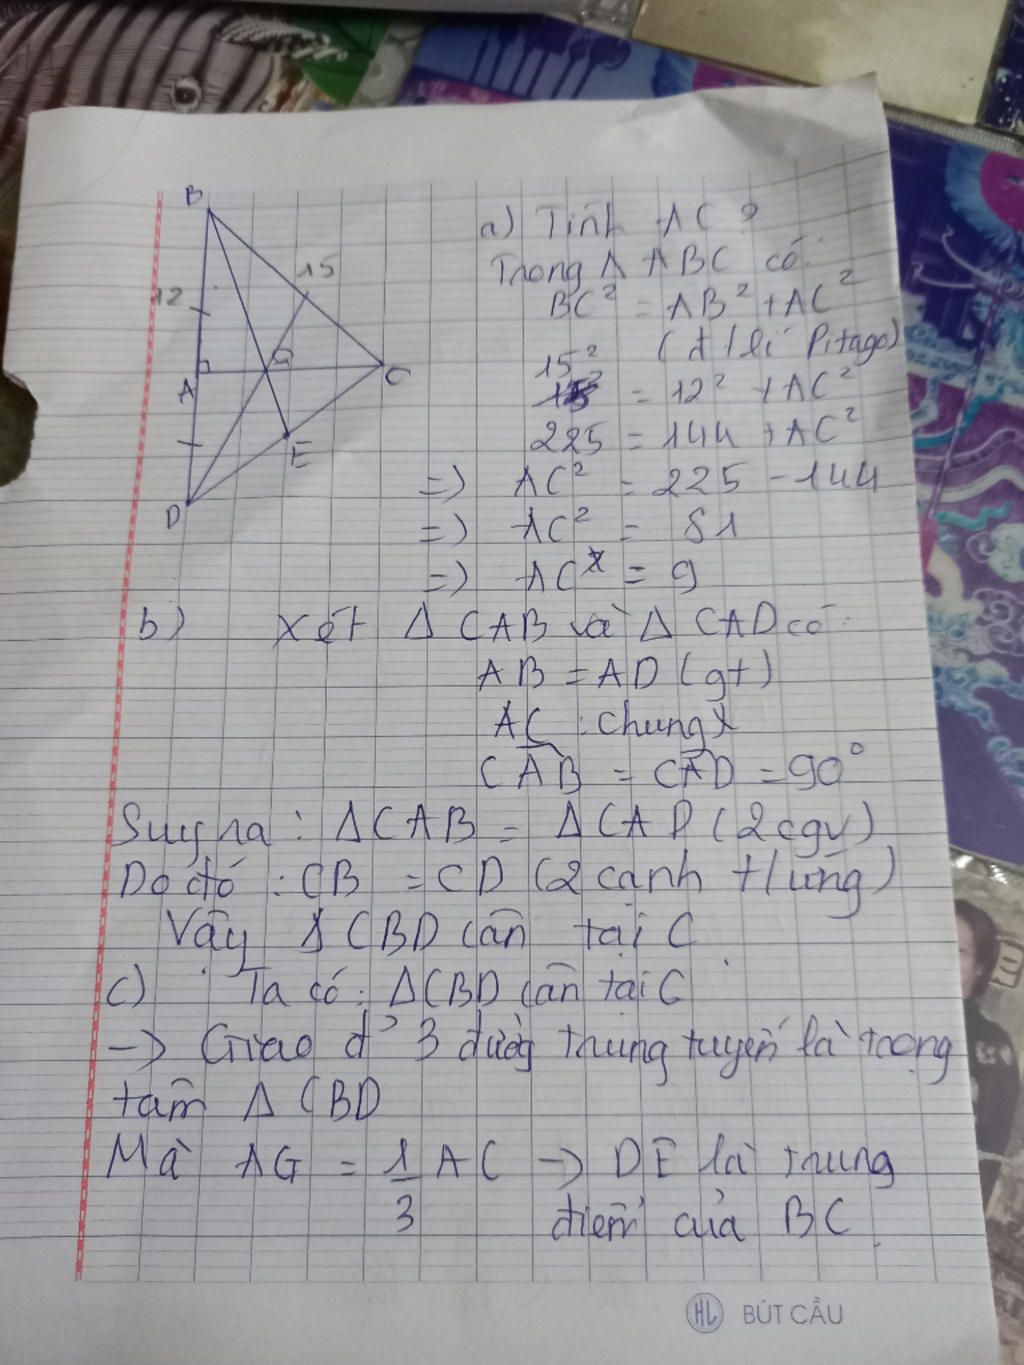 B
15
12
G
A
C
E
D
a) Tính AC?
Trong Δ ABC có:
BC² = AB² + AC²
(đ/lí Pitago)
15² = 12² + AC²
225 = 144 + AC²
=) AC² = 225 - 144
=) AC² = 81
=) AC = 9
b) Xét Δ CAB và Δ CAD có:
AB = AD (gt)
AC : chung
CÂB = CÂD = 90°
Suy ra : ΔCAB = ΔCAD (2cgv)
Do đó : CB = CD (2 cạnh t/ứng)
Vậy Δ CBD cân tại C
c) Ta có : ΔCBD cân tại C
-> Giao đ' 3 đường trung tuyến là trọng
tâm Δ CBD
Mà AG = 1/3 AC -> DE là trung
điểm của BC
HL BÚT CẦU